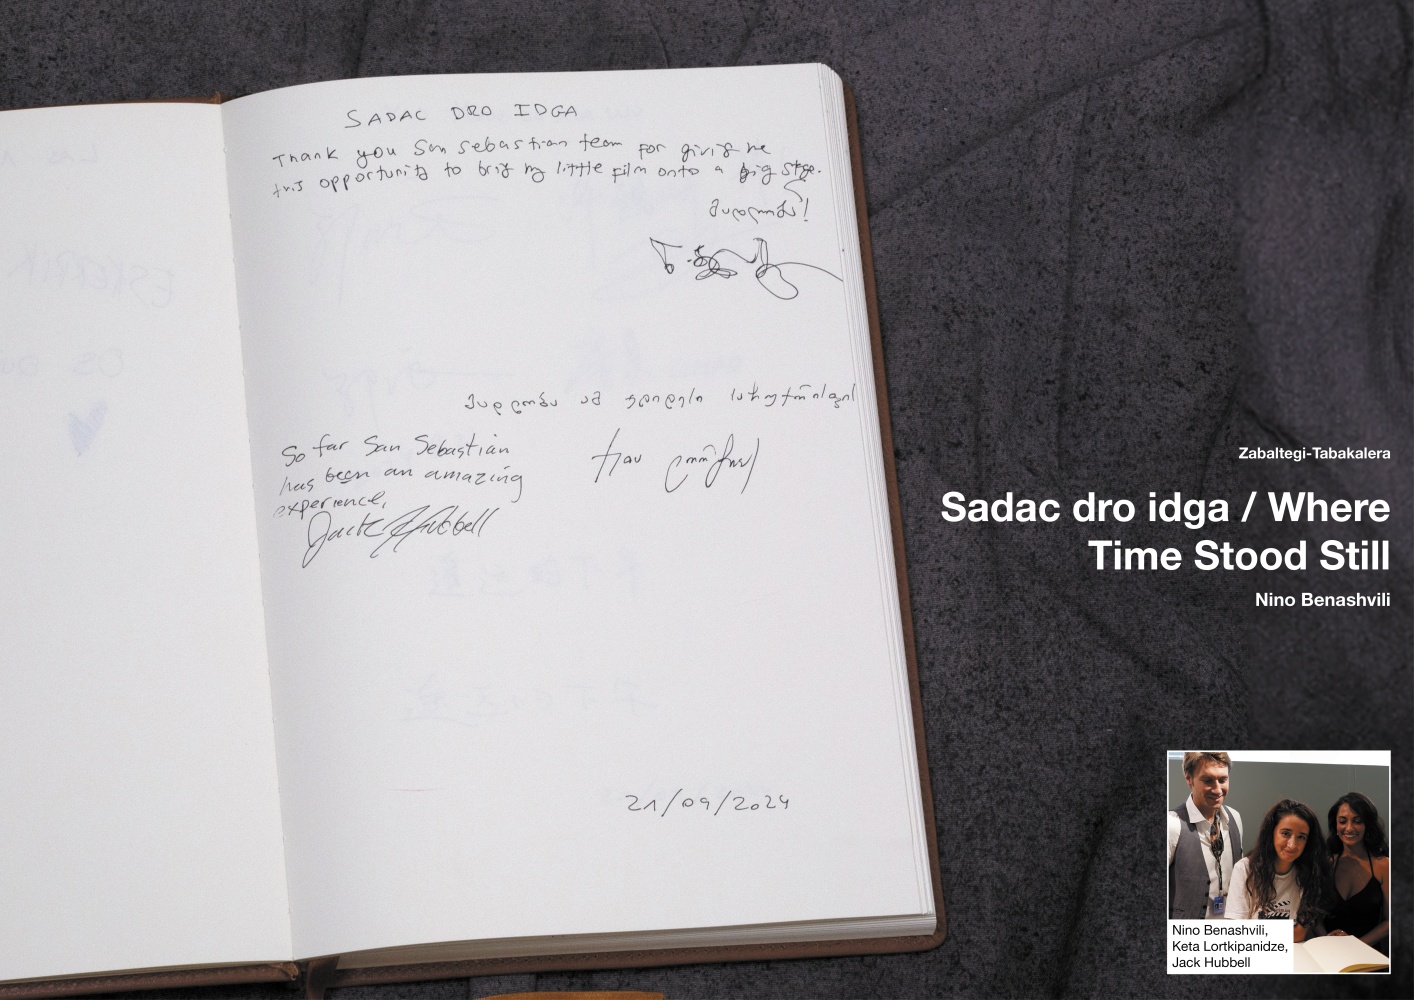 SADAC DRO IDGA
Thank you San Sebastian team for giving me
this opportunity to bring my little film onto a big stage.
მადლობა!
So far San Sebastian
has been an amazing
experience,
Jack Hubbell
მადლობა ამ
21/09/2024
Zabaltegi-Tabakalera
Sadac dro idga / Where
Time Stood Still
Nino Benashvili
Nino Benashvili,
Keta Lortkipanidze,
Jack Hubbell